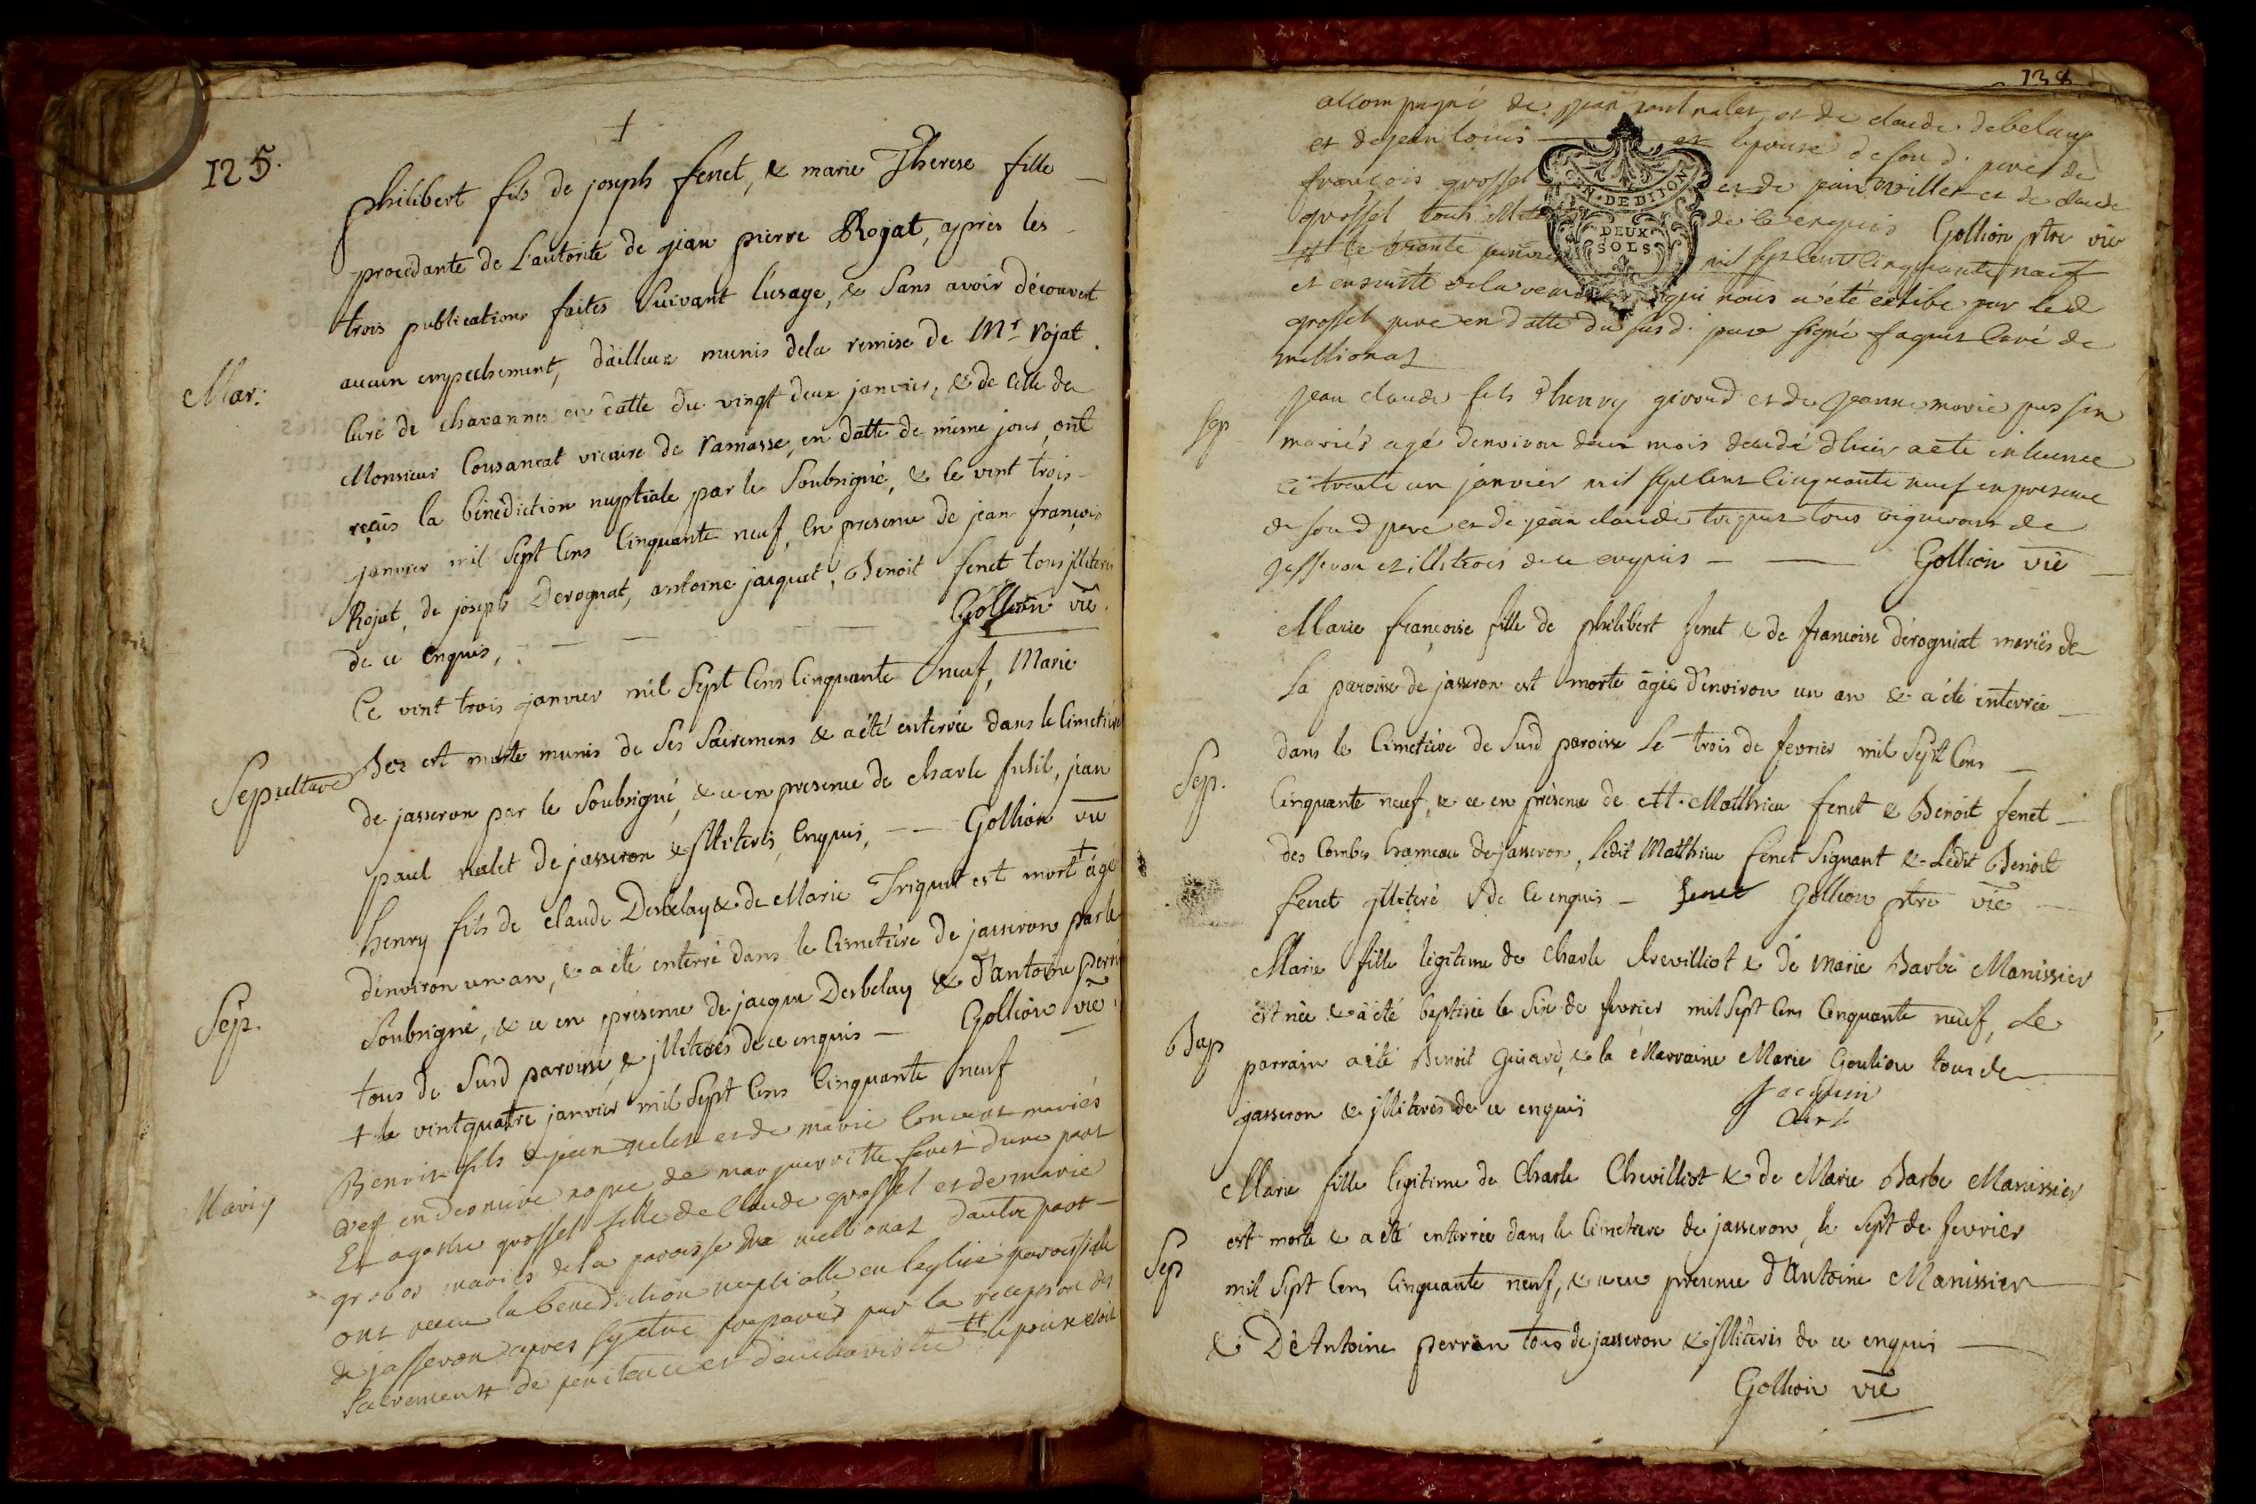 125.
+
philibert fils de joseph fenet, & marie Therese fille
procedante de L'autorité de jean pierre Rojat, après les
trois publications faites suivant l'usage, & sans avoir découvert
aucun empechement, d'ailleur munis dela remise de Mr rojat
Mar:
curé de chavannes en datte du vingt deux janvier, & de celle de
Monsieur Cousancat vicaire de ramasse, en datte de même jour, ont
reçus la bénédiction nuptiale par le Soubsigné, & le vint trois
janvier mil sept Cens Cinquante neuf, en presence de jean françois
Rojat, de joseph Derognat, antoine jacquet, Benoit fenet tous illiterés
de ce enquis, Gollion vic
Ce vint trois janvier mil sept Cens Cinquante neuf, Marie
Sepulture
est morte munis de ses sacremens & a été enterrée dans le Cimetière
de jasseron par le Soubsigné, & ce en presence de charle fusil, jean
paul nalet de jasseron & illiterés, Enquis, Gollion vic
henry fils de claude Desbelay & de Marie Triquet est mort + agé
d'environ un an, & a été enterré dans le Cimetière de jasseron par le
Sep.
Soubsigné, & ce en présence de jacque Desbelay & d'antoine perrin
tous de Susd paroisse & illiterés de ce enquis Gollion vic
+ le vintquatre janvier mil sept Cens Cinquante neuf
Benoit fils de jean nalet et de marie mariés
Mariag
en derniere nopce de marguerite d'une part
Et agathe grosset fille de Claude grosset et de marie
mariés de la paroisse de meillonas d'autre part
ont receu la benediction nuptialle en l'eglise paroissialle
de jasseron apres s'y etre preparés par la reception des
sacrements de penitence et d'eucharistie # lepoux etoit
138
accompagné de jean paul nalet, et de claude debelay
et de jean louis et lepouse de son d. pere de
françois grosset et de jean millet et de claude
grosset tous de ce enquis Gollion ptre vic
GEN. DE DIJON
DEUX
SOLS
# le trente janvier mil sept cent cinquante neuf
et ensuitte de la qui nous a été exhibé par led
grosset pere en datte du susd. jour signé curé de
meillonas
jean claude fils d'henry giroud et de jeanne marie
Sep
mariés agé denviron deux mois decedé d'hier a ete inhumé
ce trente un janvier mil sept cent cinquante neuf en presence
de son d pere et de jean claude triquet tous vignerons de
jasseron et illiterés de ce enquis Gollion vic
Marie françoise fille de philibert fenet & de françoise dérogniat mariés de
La paroisse de jasseron est morte agée d'environ un an & a été enterrée
dans le Cimetière de Susd paroisse Le trois de fevrier mil sept Cens
Sep.
Cinquante neuf, & ce en présence de Matthieu fenet & Benoit fenet
des Combes hameau de jasseron, Ledit Matthieu fenet Signant & Ledit Benoit
fenet illiteré de Ce enquis fenet Gollion ptre vic
Marie fille legitime de Charle Chevilliot & de Marie Barbe Manissier
est née & a été baptisée le Six de fevrier mil Sept Cens Cinquante neuf, Le
Bap
parrain a été Benoit Guiard, & la Marraine Marie Goulion tous de
jasseron & illiterés de ce enquis
Marie fille legitime de Charle Chevilliot & de Marie Barbe Manissier
est morte & a été enterrée dans le Cimetiere de jasseron, le Sept de fevrier
Sep
mil Sept Cens Cinquante neuf, & ce en presence d'Antoine Manissier
& D'Antoine perrin tous de jasseron & illiterés de ce enquis
Gollion vic